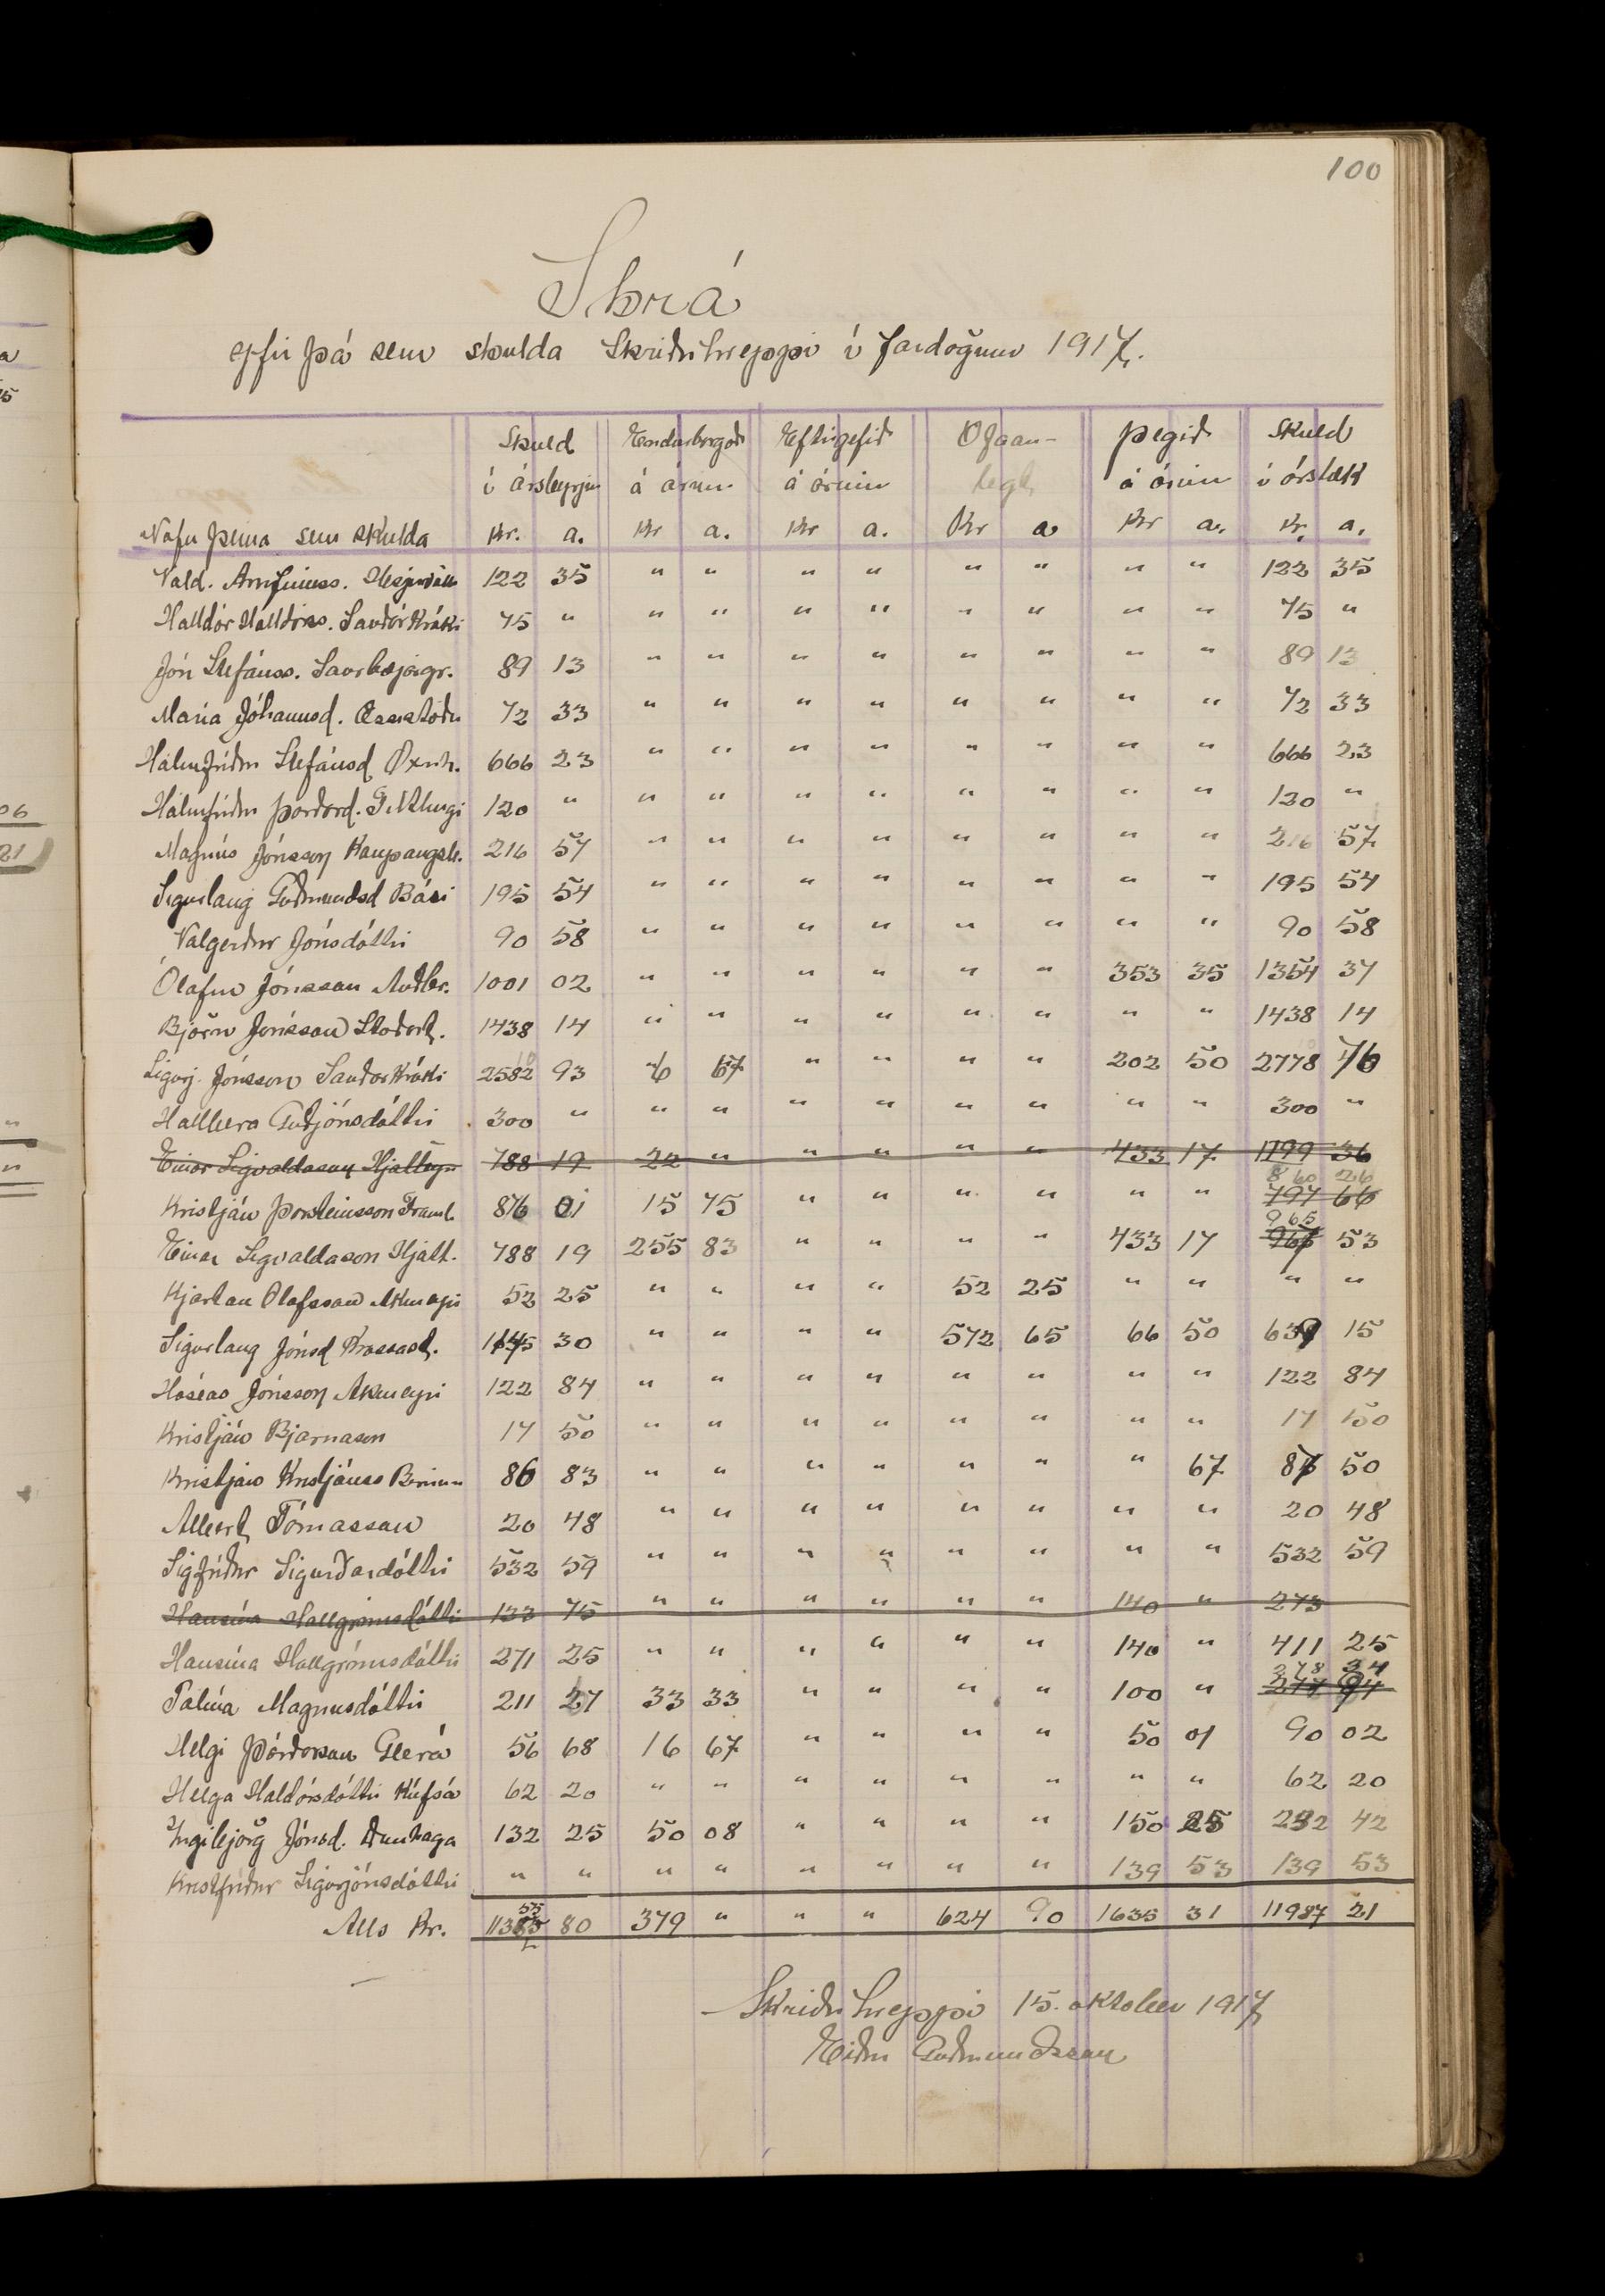 100
Skrá
yfir þá sem skulda Skriðuhreppi í fardögum 1917.
Skuld Endurborgað Eftirgefið Ófáan- Þegið Skuld
í ársbyrjun á árinu á árinu legt á árinu í árslok
Nöfn þeirra sem skulda Kr. a. Kr a. Kr a. Kr a Kr a. Kr. a.
Vald. Arnfinnss. 122 35 " " " " " " " " 122 35
Halldór Halldórss. Sauðárkróki 75 " " " " " " " " " 75 "
Jón Stefánss. Saurbæjargr. 89 13 " " " " " " " " 89 13
María Jóhannsd. 72 33 " " " " " " " " 72 33
Hólmfríður Stefánsd Öxnh. 666 23 " " " " " " " " 666 23
Hólmfríður Þorðard. 120 " " " " " " " " " 120 "
Magnús Jónsson Kaupangsb. 216 57 " " " " " " " " 216 57
Sigurlaug Guðmundsd Bási 195 54 " " " " " " " " 195 54
Valgerður Jónsdóttir 90 58 " " " " " " " " 90 58
Ólafur Jónsson Auðbr. 1001 02 " " " " " " 353 35 1354 37
Björn Jónsson 1438 14 " " " " " " " " 1438 14
Sigurj. Jónsson Sauðárkróki 2582 93 6 67 " " " " 202 50 2778 76
Hallbera Guðjónsdóttir 300 " " " " " " " " " 300 "
Einar Sigvaldason 788 19 22 " " " " " 433 17 1199 36
860 26
Kristján Þorsteinsson Framl. 876 01 15 75 " " " " " " 797 66
965
Einar Sigvaldason Hjalt. 788 19 255 83 " " " " 433 17 967 53
Kjartan Ólafsson Akureyri 52 25 " " " " 52 25 " " " "
Sigurlaug Jónsd 1145 30 " " " " 572 65 66 50 639 15
Hóseas Jónsson Akureyri 122 84 " " " " " " " " 122 84
Kristján Bjarnason 17 50 " " " " " " " " 17 50
Kristján Kristjánss 86 83 " " " " " " " 67 87 50
Albert Tómasson 20 48 " " " " " " " " 20 48
Sigfríður Sigurðardóttir 532 59 " " " " " " " " 532 59
Hansína Hallgrímsdóttir 133 75 " " " " " " 140 " 273
Hansína Hallgrímsdóttir 271 25 " " " " " " 140 " 411 25
278 34
Pálína Magnúsdóttir 211 27 33 33 " " " " 100 " 277 94
Helgi Þórðarson Glerá 56 68 16 67 " " " " 50 01 90 02
Helga Haldórsdóttir Kúfsá 62 20 " " " " " " " " 62 20
Ingibjörg Jónsd. Dunhaga 132 25 50 08 " " " " 150 25 232 42
Kristfríður Sigurjónsdóttir " " " " " " " " 139 53 139 53
Alls Kr. 11355 80 379 " " " 624 90 1635 31 11987 21
Skriðuhreppi 15. oktober 1917
Eiður Guðmundsson